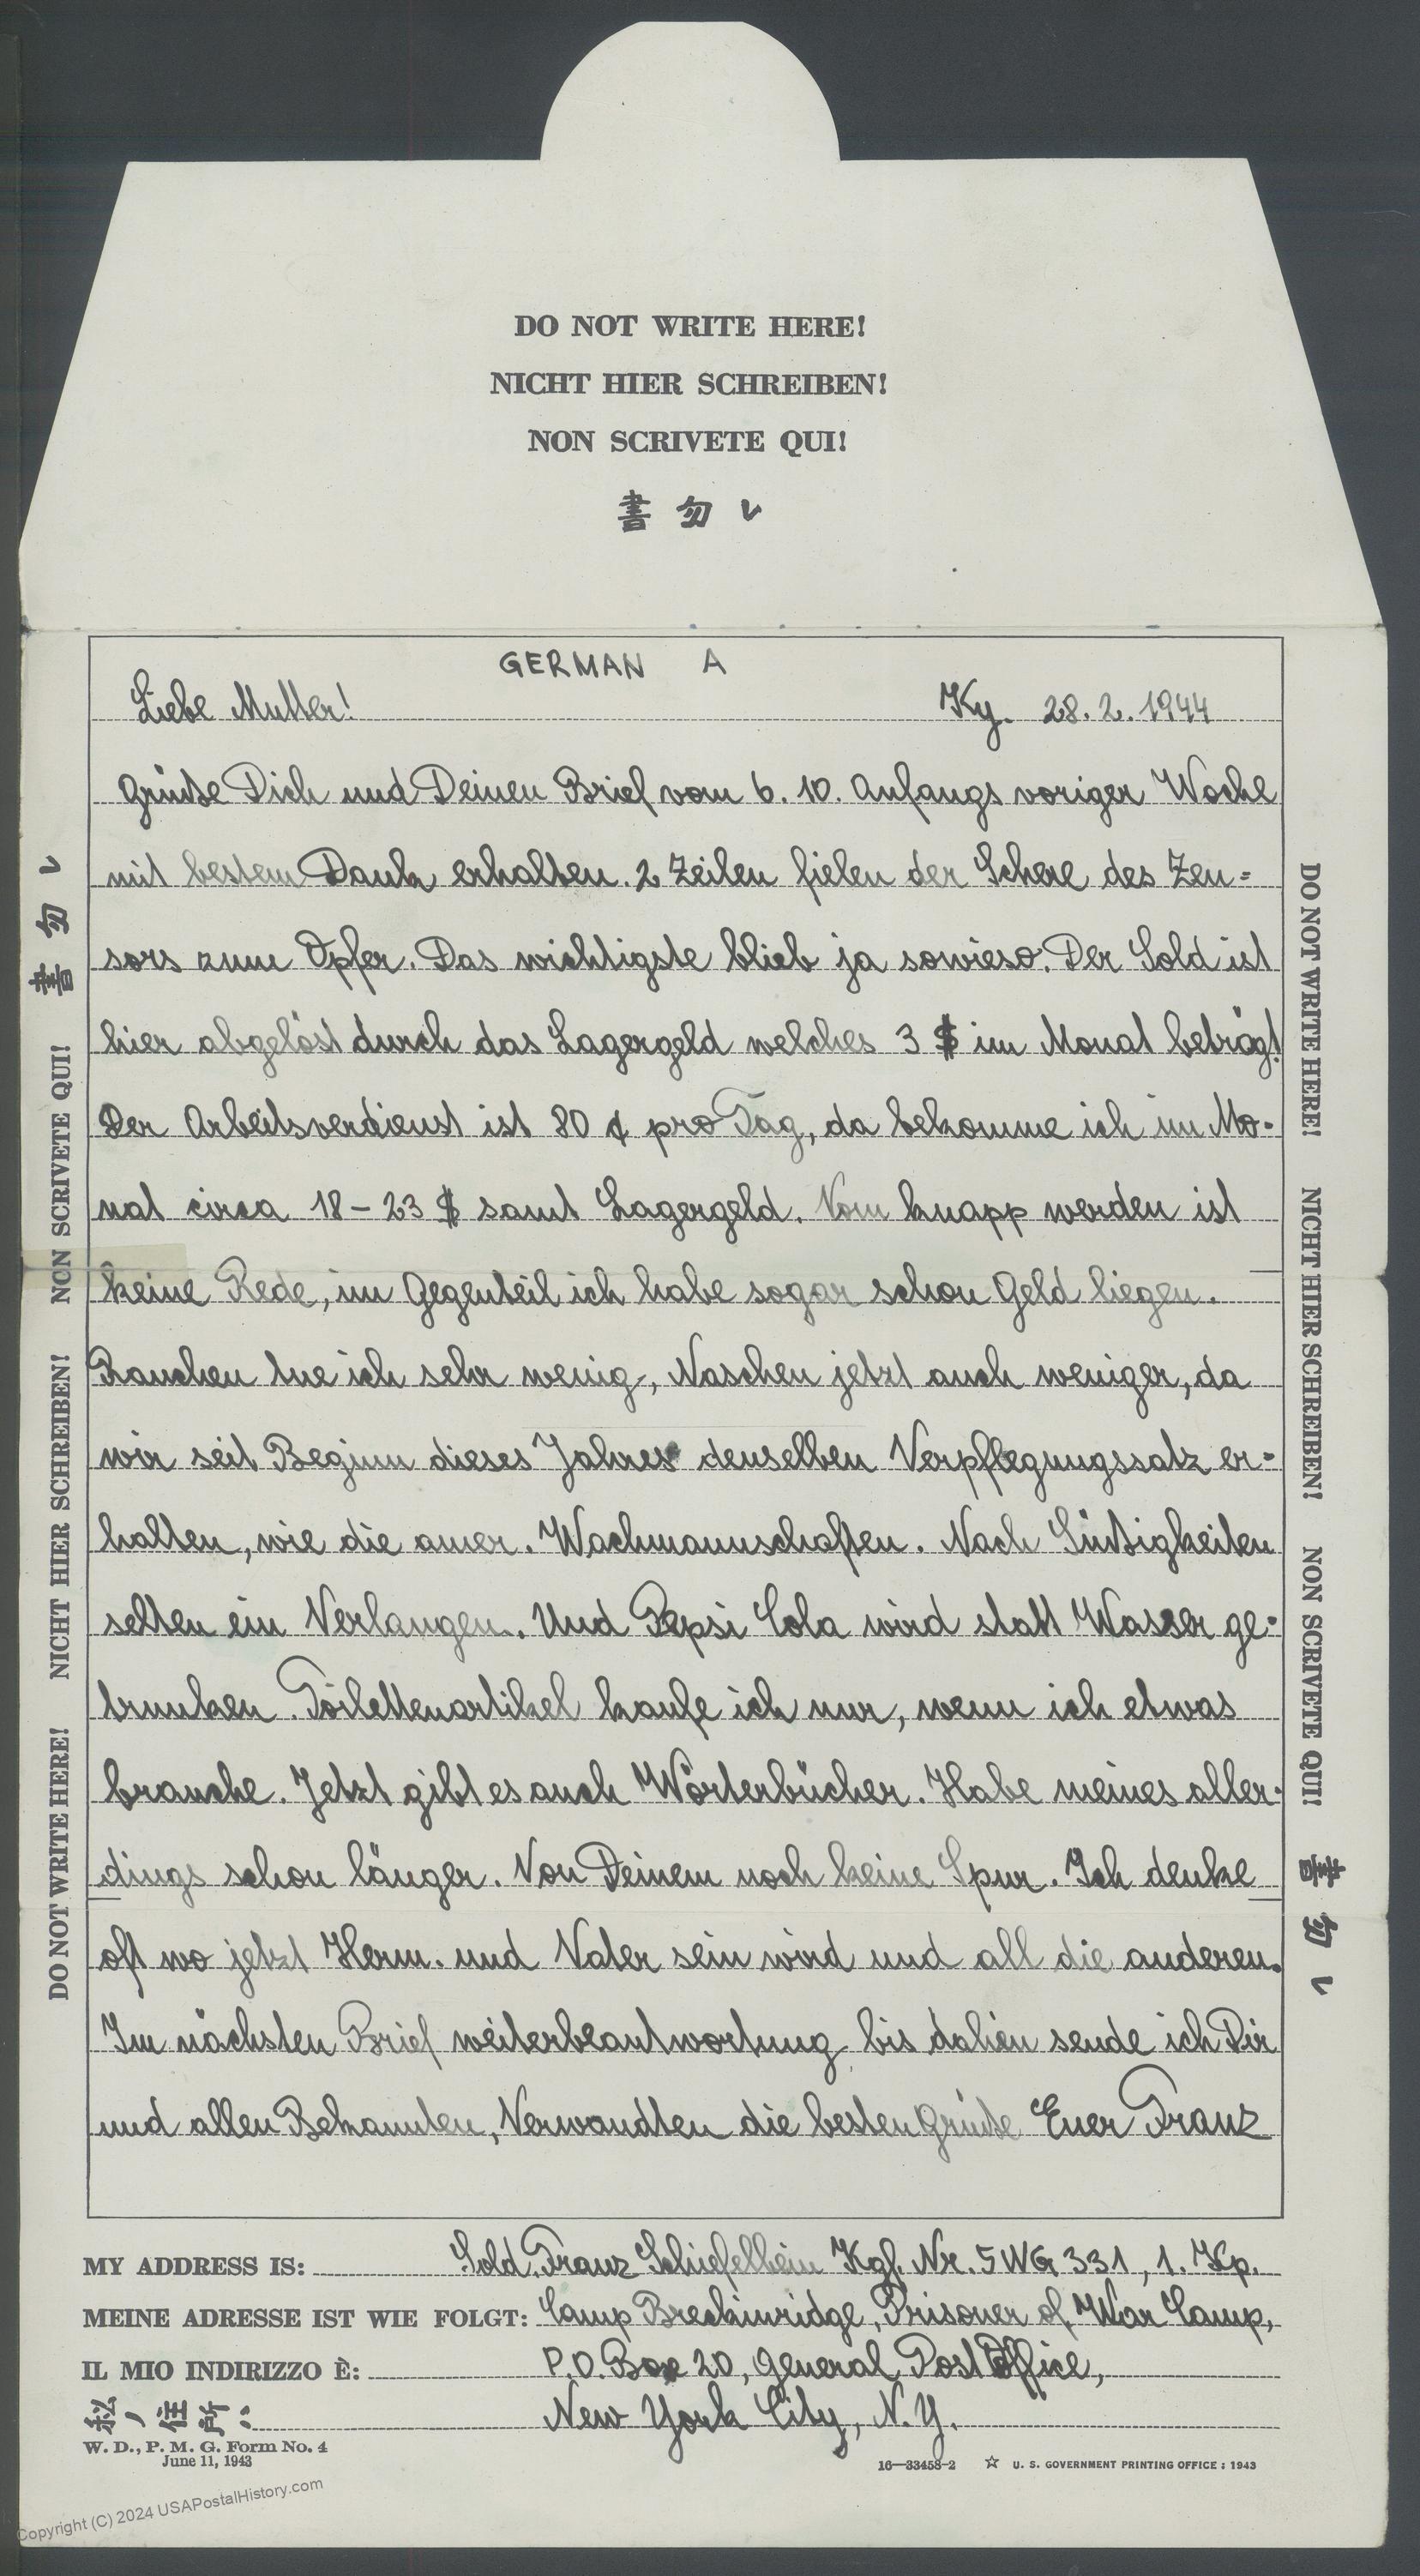 DO NOT WRITE HERE!
NICHT HIER SCHREIBEN!
NON SCRIVETE QUI!
書 勿 レ
GERMAN A
Liebe Mutter! Ky. 28.2.1944
Grüße Dich und Deinen Brief vom 6. 10. Anfangs voriger Woche
mit bestem Dank erhalten. 2 Zeilen fielen der Schere des Zen=
sors zum Opfer. Das wichtigste blieb ja sowieso. Der Sold ist
hier abgelöst durch das Lagergeld welches 3 $ im Monat beträgt!
Der Arbeitsverdienst ist 80 ¢ pro Tag, da bekomme ich im Mo-
nat cirka 18 – 23 $ samt Lagergeld. Vom knapp werden ist
keine Rede, im Gegenteil ich habe sogar schon Geld liegen.
Rauchen tue ich sehr wenig, Naschen jetzt auch weniger, da
wir seit Beginn dieses Jahres denselben Verpflegungssatz er-
halten, wie die amer. Wachmannschaften. Nach Süßigkeiten
selten ein Verlangen. Und Pepsi Cola wird statt Wasser ge-
trunken. Toilettenartikel kaufe ich nur, wenn ich etwas
brauche. Jetzt gibt es auch Wörterbücher. Habe meines aller-
dings schon länger. Von Deinem noch keine Spur. Ich denke
oft wo jetzt Herm. und Vater sein wird und all die anderen.
Im nächsten Brief weiterbeantwortung bis dahin sende ich Dir
und allen Bekannten, Verwandten die besten Grüße Euer Franz
DO NOT WRITE HERE! NICHT HIER SCHREIBEN! NON SCRIVETE QUI! 書 勿 レ
DO NOT WRITE HERE! NICHT HIER SCHREIBEN! NON SCRIVETE QUI! 書 勿 レ
MY ADDRESS IS: Sold. Franz Schiefelbein Kgf. Nr. 5WG 331, 1. Kp.
MEINE ADRESSE IST WIE FOLGT: Camp Breckinridge, Prisoner of War Camp,
IL MIO INDIRIZZO È: P.O. Box 20, General Post Office,
私ノ住所: New York City, N.Y.
W. D., P. M. G. Form No. 4
June 11, 1943
16—33458-2 ☆ U. S. GOVERNMENT PRINTING OFFICE : 1943
Copyright (C) 2024 USAPostalHistory.com